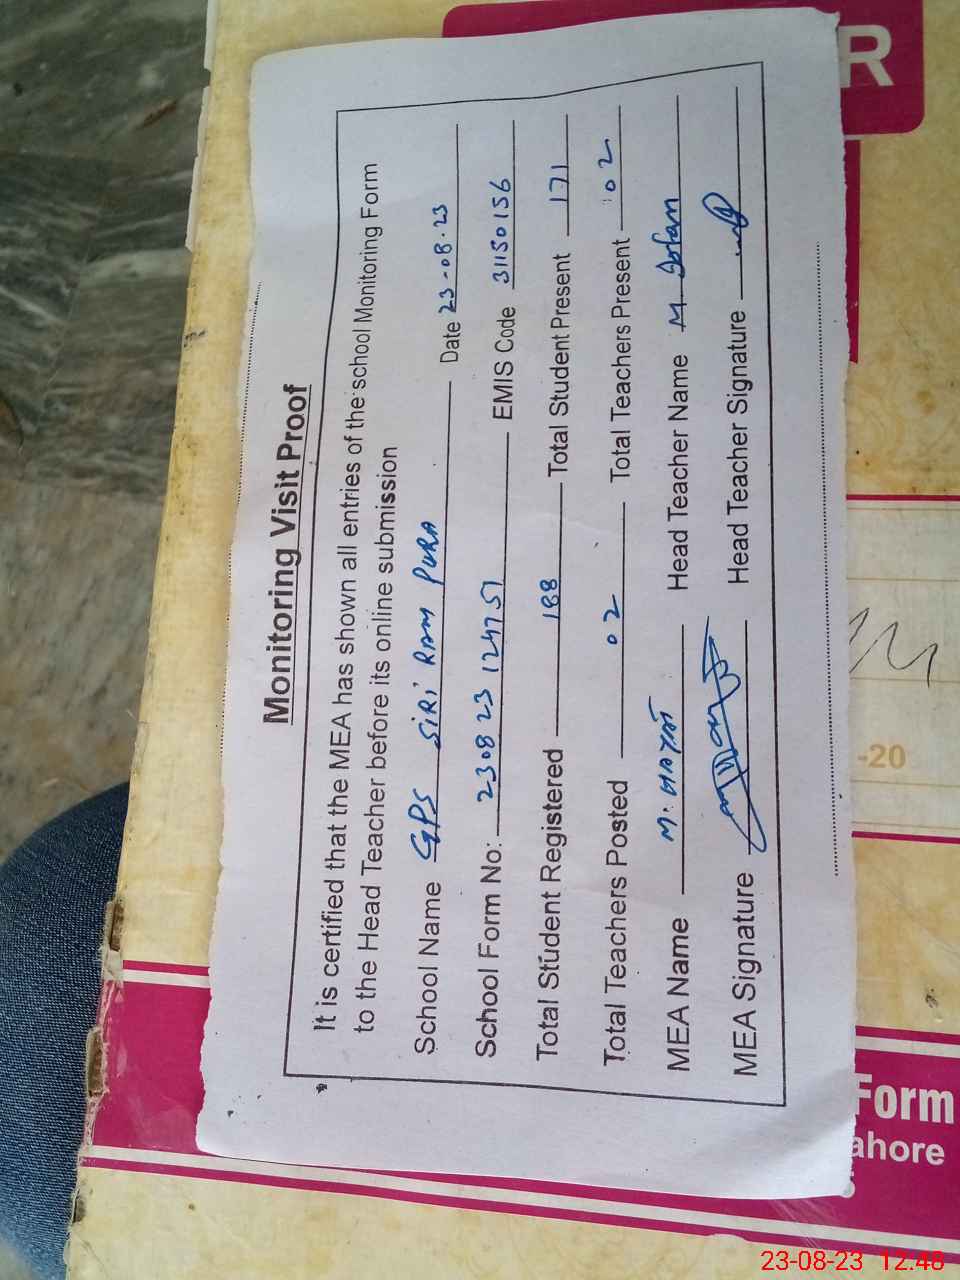 Monitoring Visit Proof
It is certified that the MEA has shown all entries of the school Monitoring Form
to the Head Teacher before its online submission
School Name GPS SiRi RAM PURA Date 23-08-23
School Form No: 230823 124751 EMIS Code 31150156
Total Student Registered 188 Total Student Present 171
Total Teachers Posted 02 Total Teachers Present 02
MEA Name M. Head Teacher Name M
MEA Signature Head Teacher Signature
R
-20
Form
ahore
23-08-23 12.48